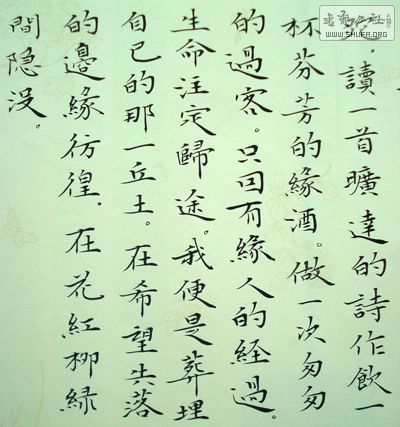 讀一首曠達的詩作飲一
杯芬芳的緣酒。做一次匆匆
的過客。只回有緣人的経過。
生命注定歸途。我便是葬埋
自己的那一丘土。在希望失落
的邊緣彷徨。在花紅柳緑
間隐没。
WWW.SHUFA.ORG